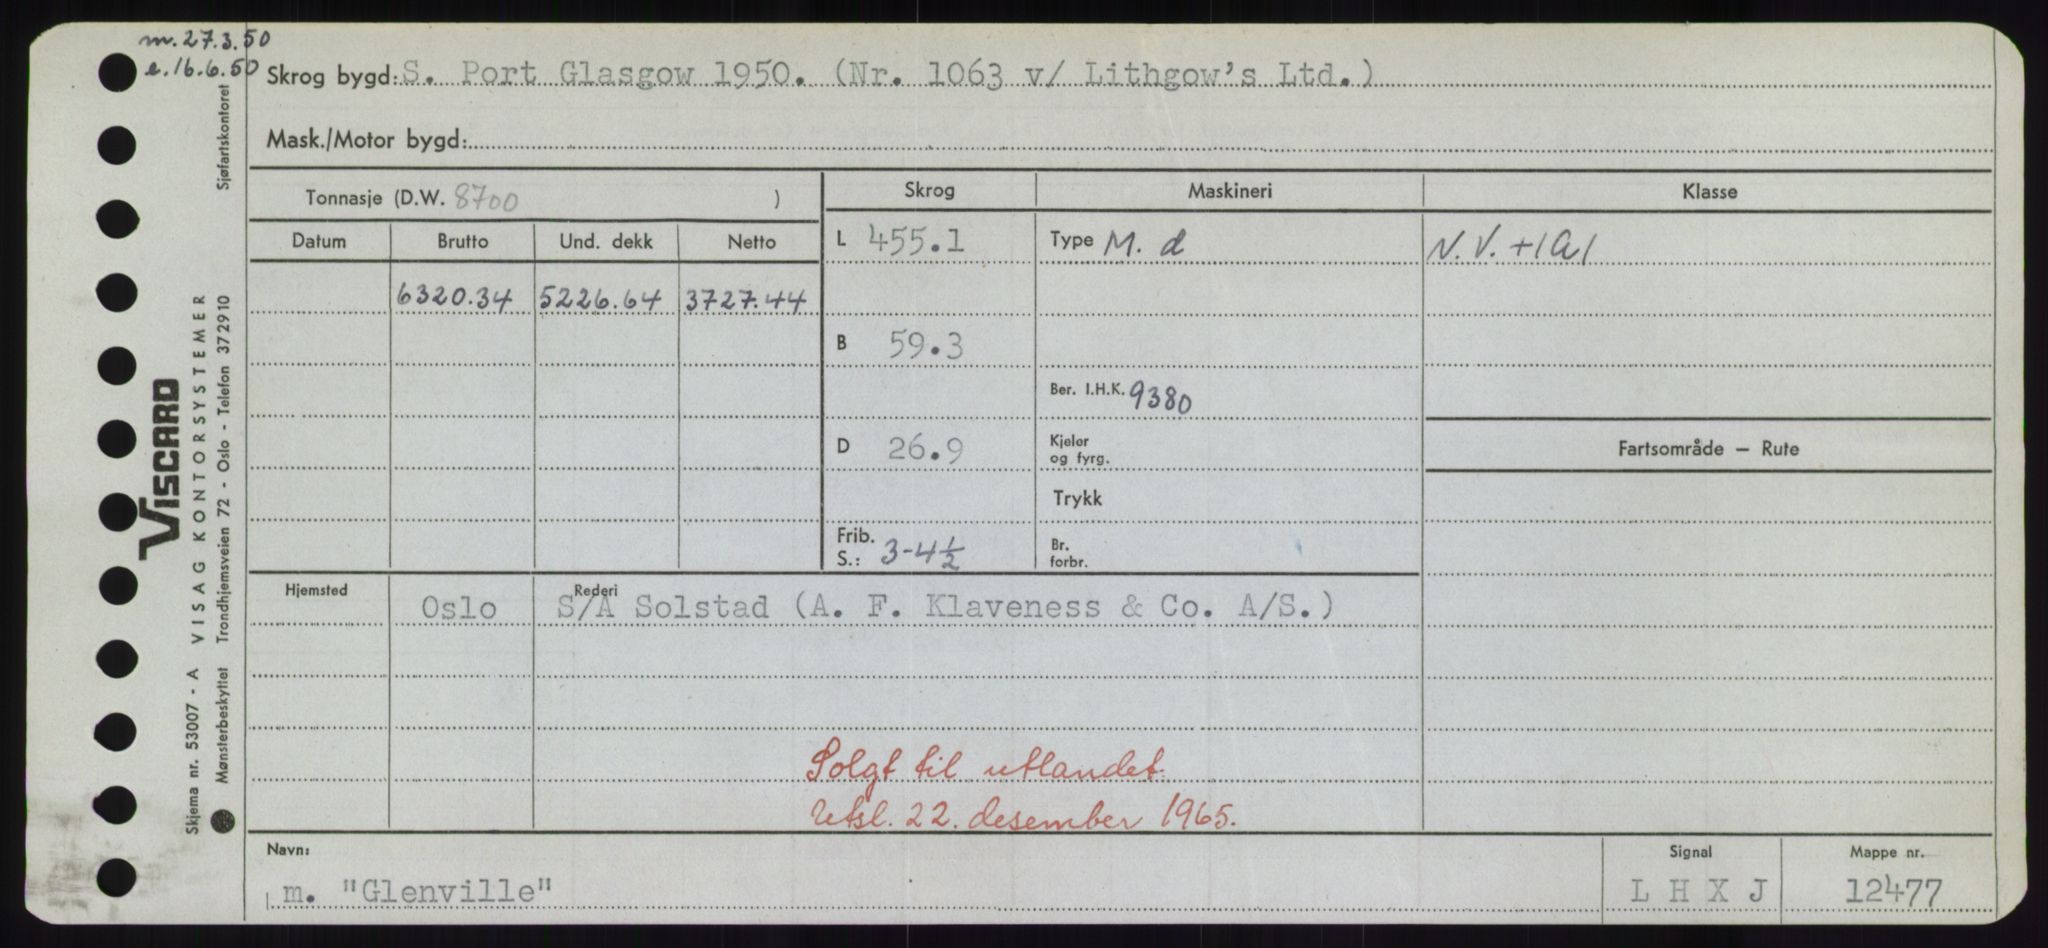 m. 27.3.50
e. 16.6.50
Skrog bygd: S. Port Glasgow 1950. (Nr. 1063 v/ Lithgow's Ltd.)
Mask./Motor bygd:
Tonnasje (D.W. 8700 )
Skrog Maskineri Klasse
Datum Brutto Und. dekk Netto
L 455.1 Type M. d N. V. +1A1
6320.34 5226.64 3727.44
B 59.3
Ber. I.H.K. 9380
D 26.9 Kjeler og fyrg.
Fartsområde — Rute
Trykk
Frib. S.: 3-4½ Br. forbr.
Hjemsted Rederi
Oslo S/A Solstad (A. F. Klaveness & Co. A/S.)
Solgt til utlandet.
Utsl. 22. desember 1965.
Navn: Signal Mappe nr.
m. "Glenville" L H X J 12477
VISCARD
Skjema nr. 53007 - A VISAG KONTORSYSTEMER
Mønsterbeskyttet Trondhjemsveien 72 - Oslo - Telefon 372910 Sjøfartskontoret